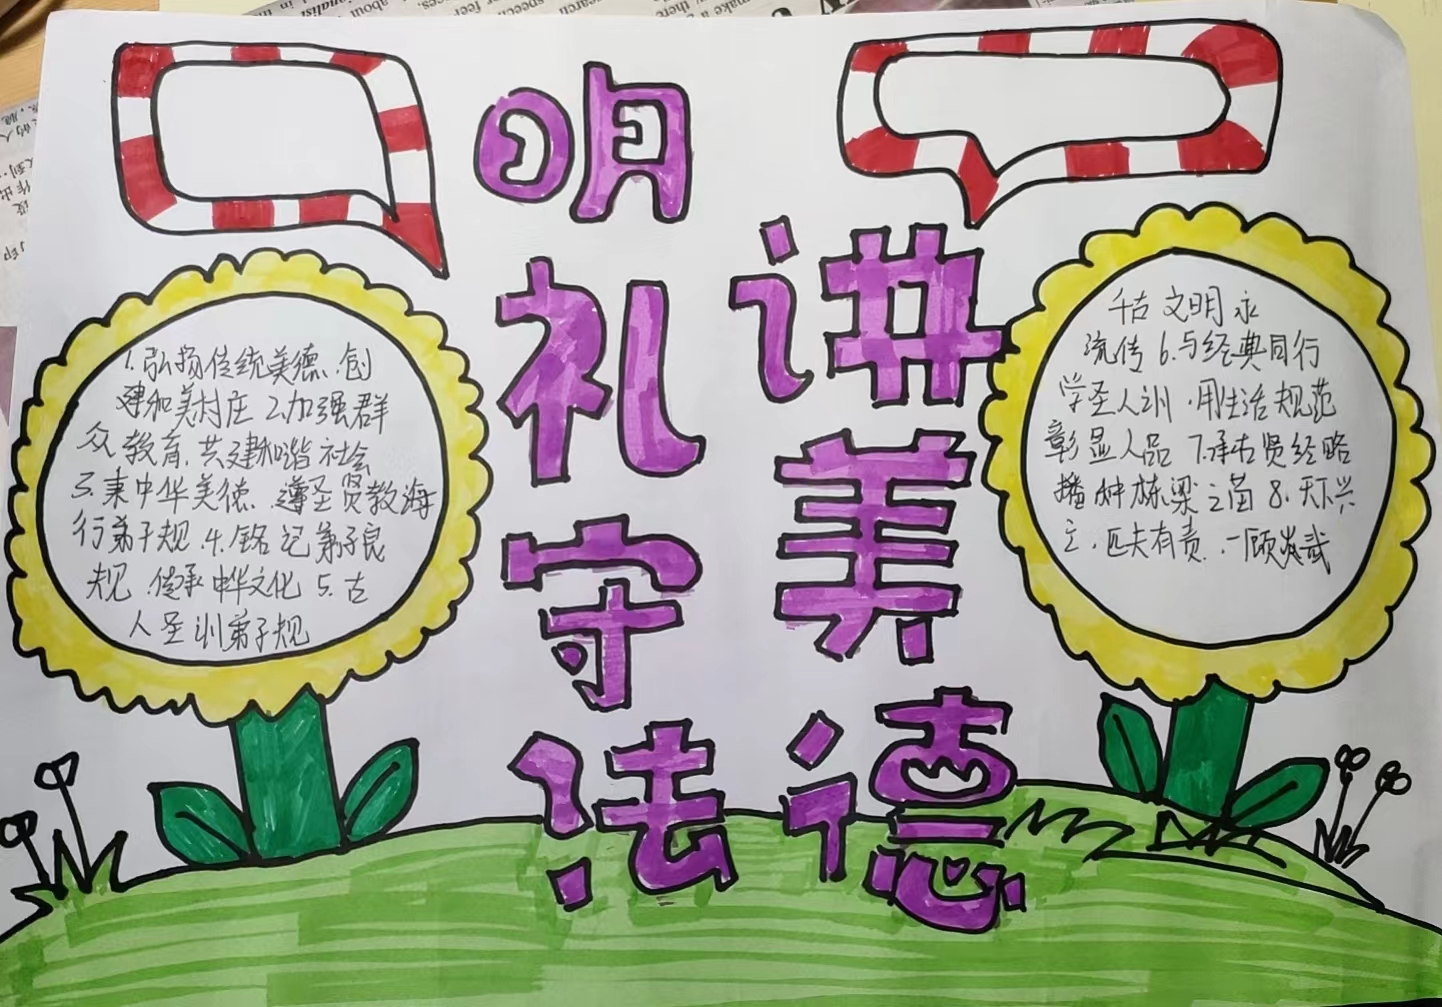 明礼守法
讲美德
1.弘扬传统美德.创
建和美村庄 2.加强群
众教育.共建和谐社会
3.秉中华美德.遵圣贤教诲
行弟子规.4.铭记弟子良
规.传承中华文化 5.古
人圣训弟子规
千古文明永
流传 6.与经典同行
学圣人训.用生活规范
彰显人品 7.承古贤经略
播种栋梁之苗 8.天下兴
亡.匹夫有责.